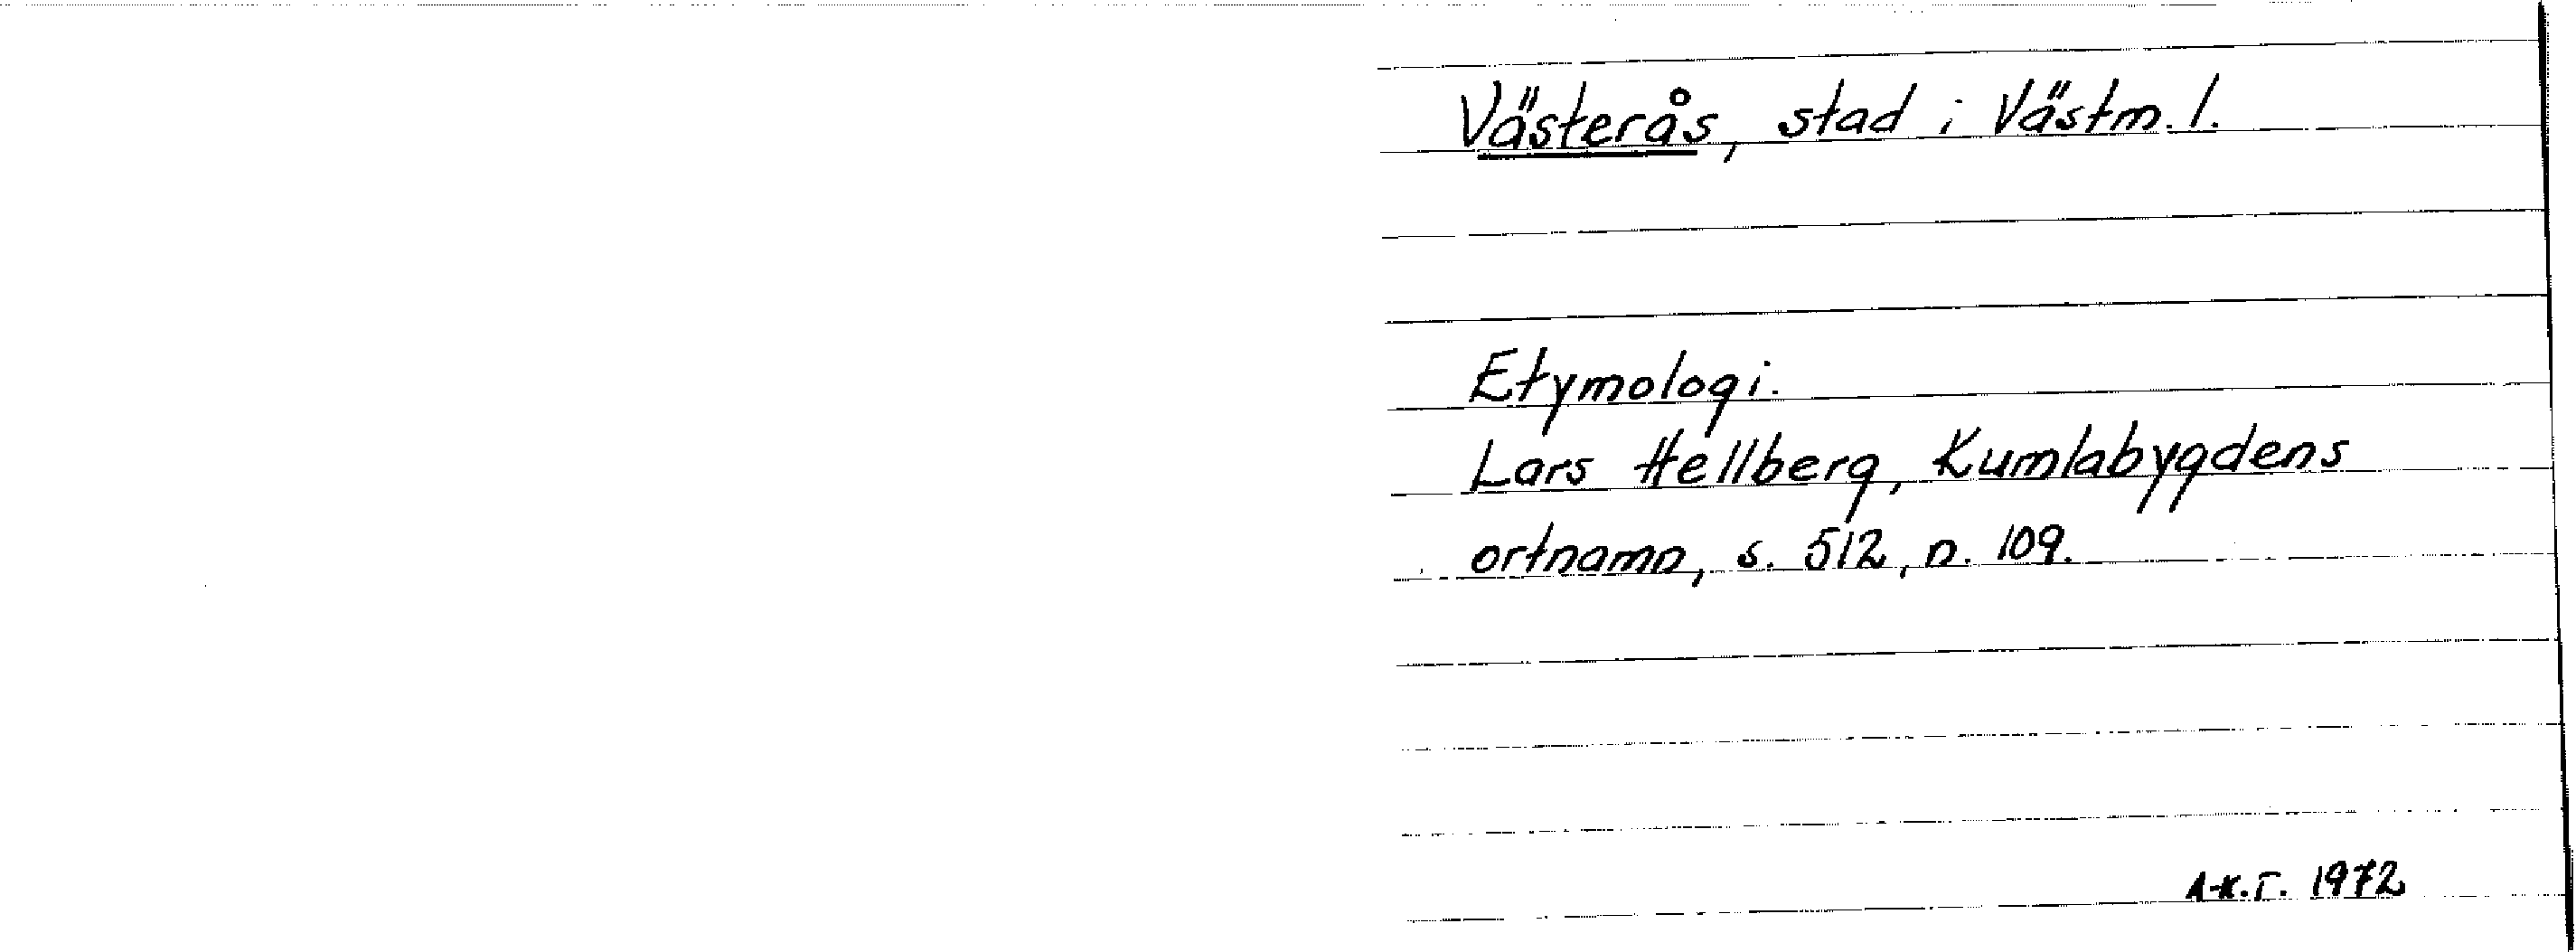 Västerås, stad i Västm. l.
Etymologi.
Lars Hellberg, Kumlabygdens
ortnamn, s. 512, n. 109.
1972